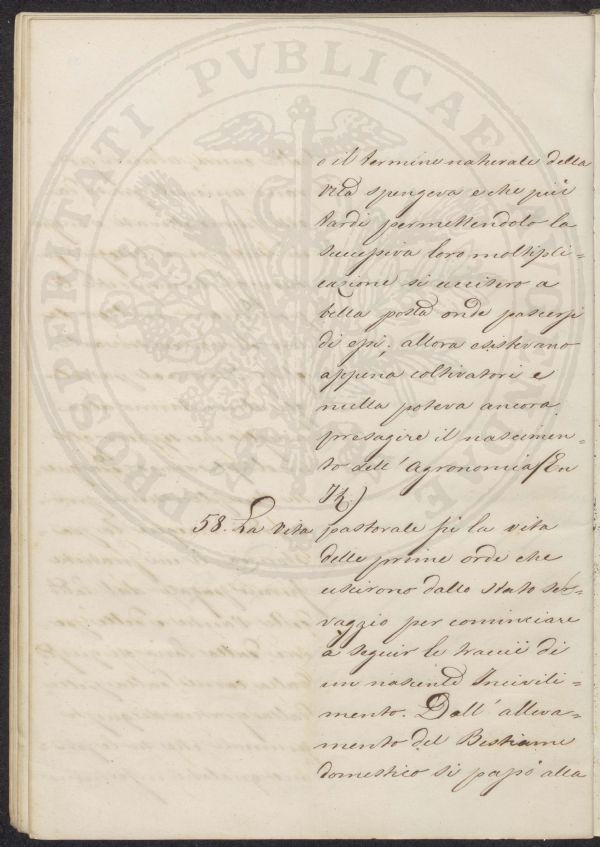 PROSPERITATI PVBLICAE AVGENDAE
o il termine naturale della
vita spengeva e che più
tardi permettendolo la
successiva loro moltipli-
cazione si uccisero a
bella posta onde pascersi
di essi; allora esistevano
appena coltivatori e
nulla poteva ancora
presagire il nascimen-
to dell'Agronomia (En
58. La vita pastorale fù la vita
delle prime orde che
uscirono dallo stato sel-
vaggio per cominciare
a seguir le traccie di
un nascente Incivili-
mento. Dall'alleva-
mento del Bestiame
domestico si passò alla